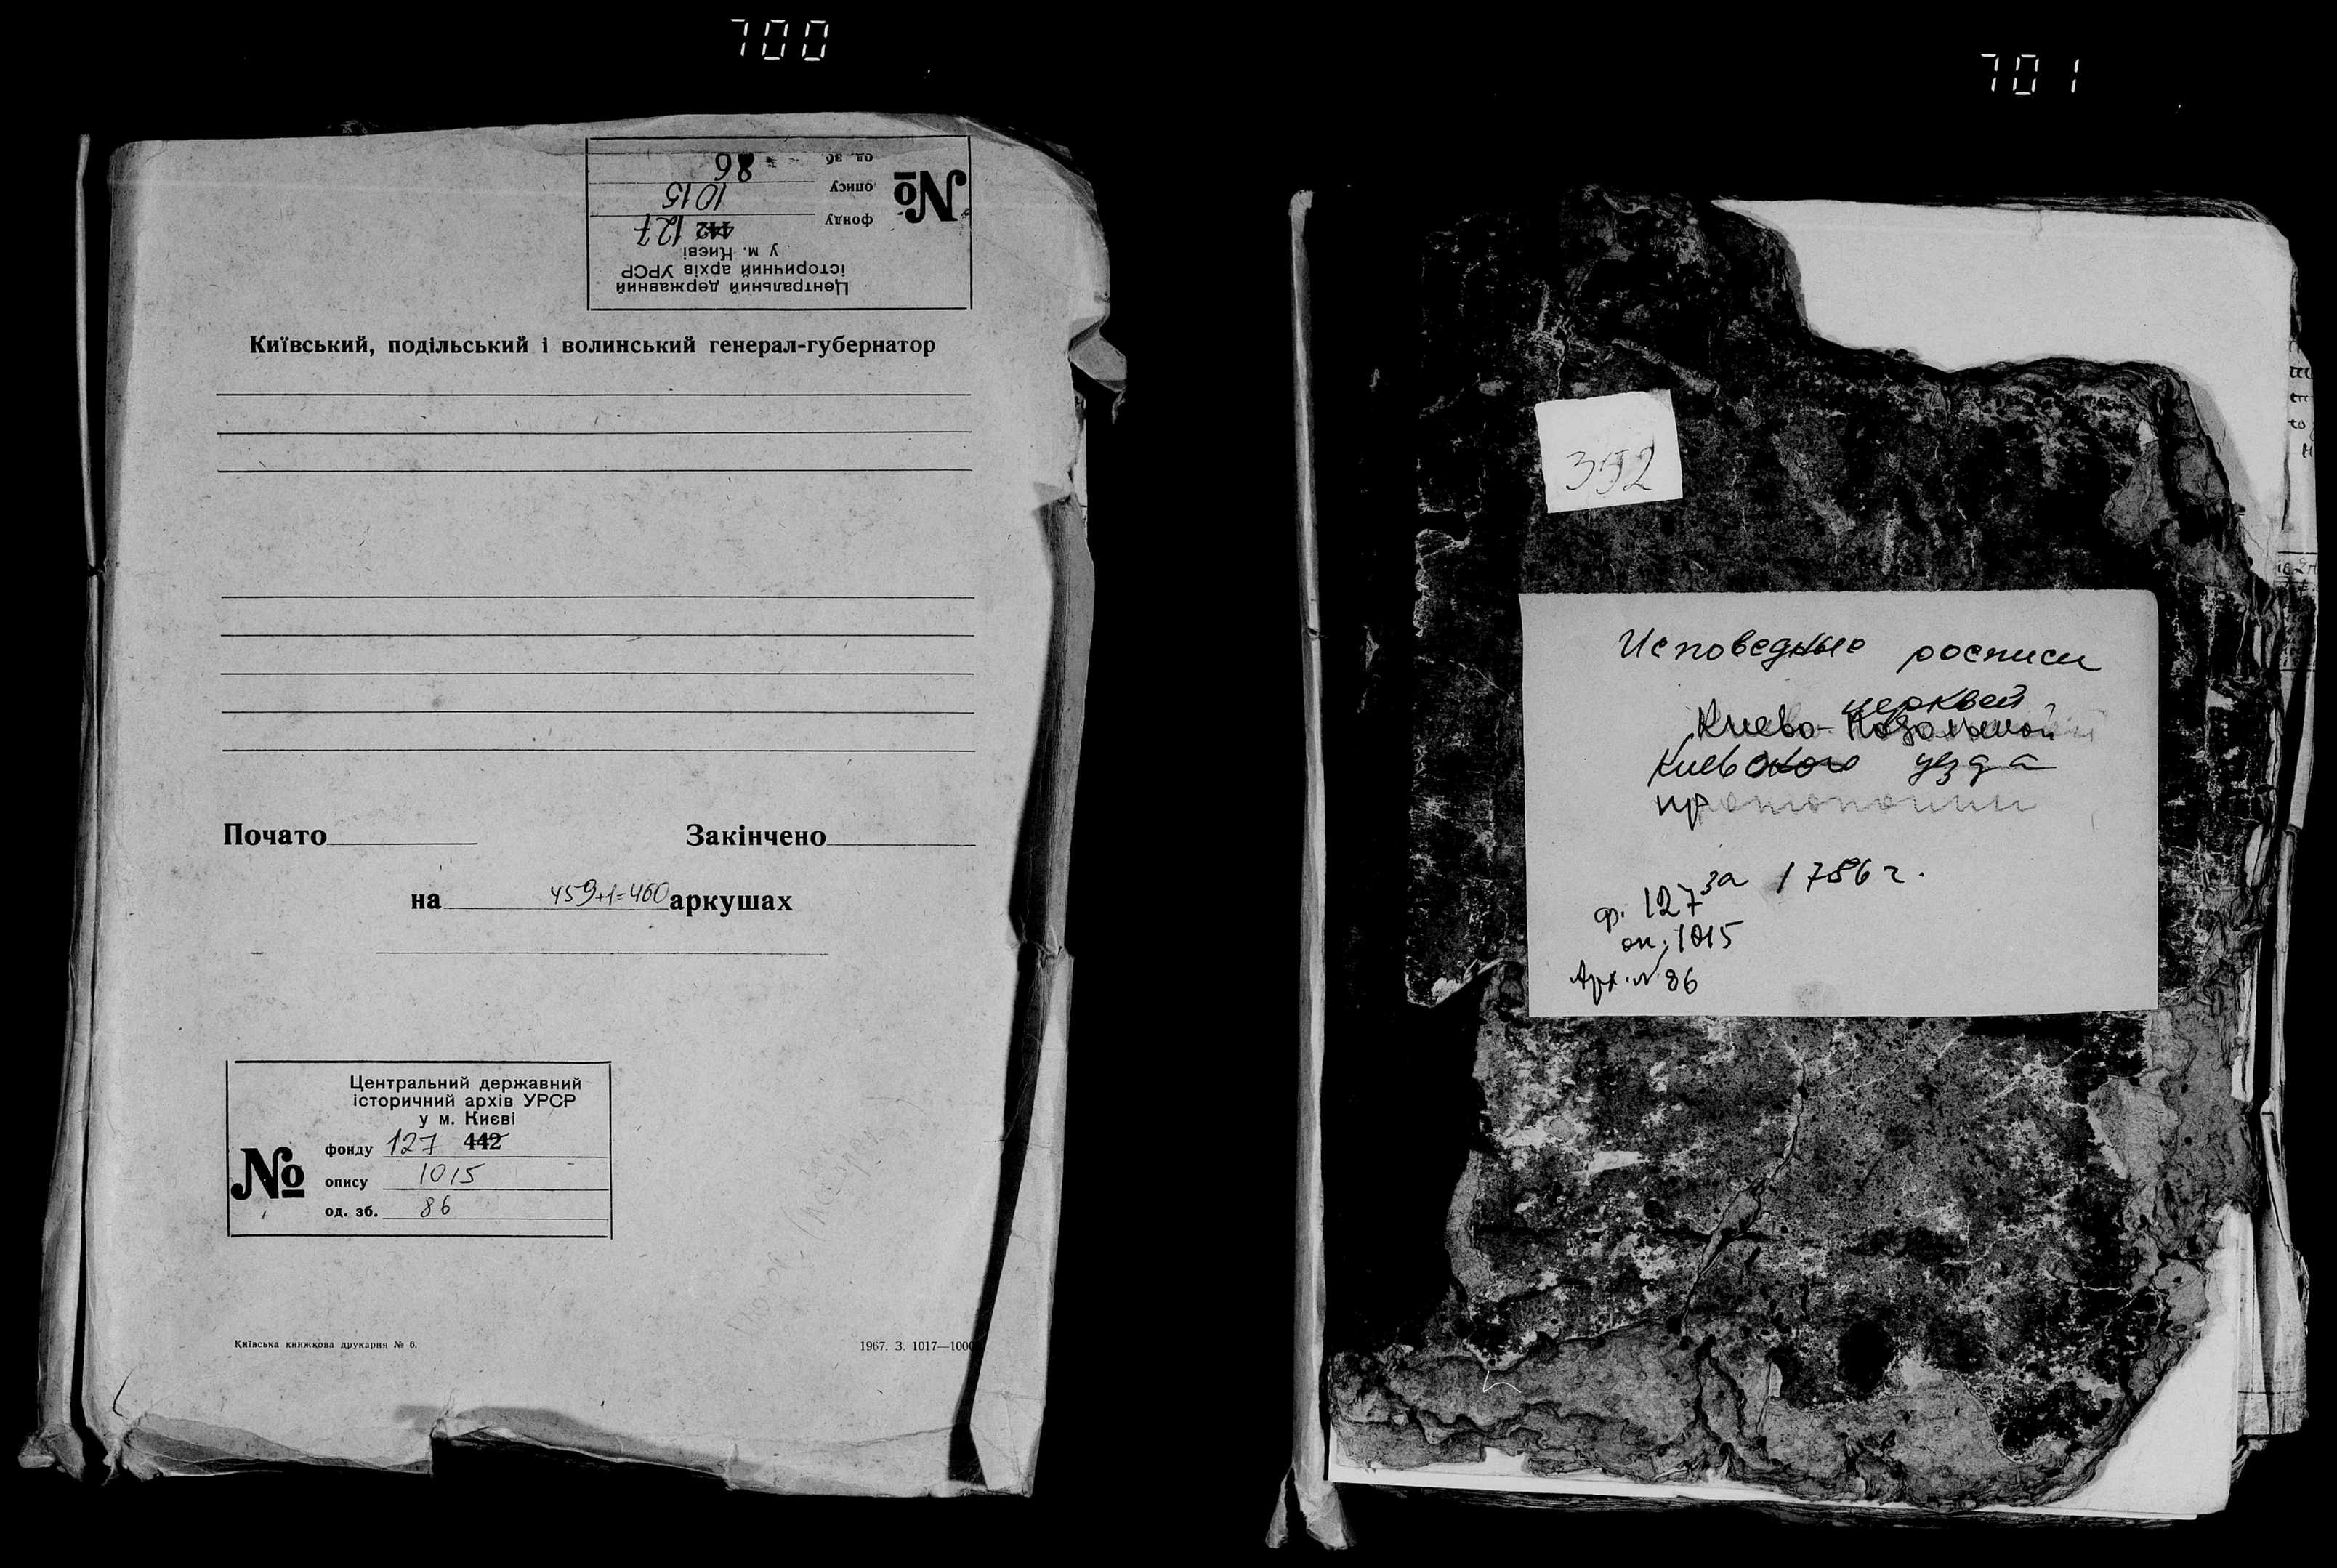 700
од. зб. 86
опису 1015
фонду 442 127
№
у м. Києві
історичний архів УРСР
Центральний державний
Київський, подільський і волинський генерал-губернатор
Почато Закінчено
на 459+1=460 аркушах
Центральний державний
історичний архів УРСР
у м. Києві
№
фонду 127 442
опису 1015
од. зб. 86
Київська книжкова друкарня № 6.
1967. З. 1017—1000
701
352
Исповедные росписи
церквей
Киево-
Киевского уезда
протопопии
за 1786 г.
ф. 127
оп. 1015
Арх. № 86